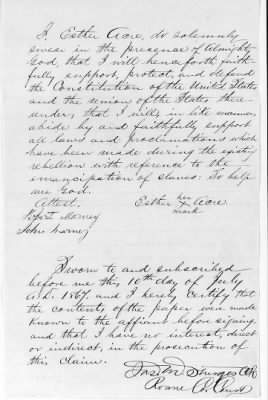 I, Esther Acre, do solemnly
swear in the presence of Almighty
God, that I will henceforth faith-
fully support, protect, and defend
the Constitution of the United States
and the Union of the States there-
under, that I will, in like manner
abide by and faithfully support
all laws and proclamations which
have been made during the existing
rebellion with reference to the
emancipation of slaves: So help
me God.
Attest. Esther her x mark Acre
Robert
John
Sworn to and subscribed
before me this 10th day of July
A.D. 1867, and I hereby certify that
the contents of the paper was made
known to the affiant before signing
and that I have no interest, direct
or indirect, in the prosecution of
this claim.
Sturges Clk
Roane C. Court